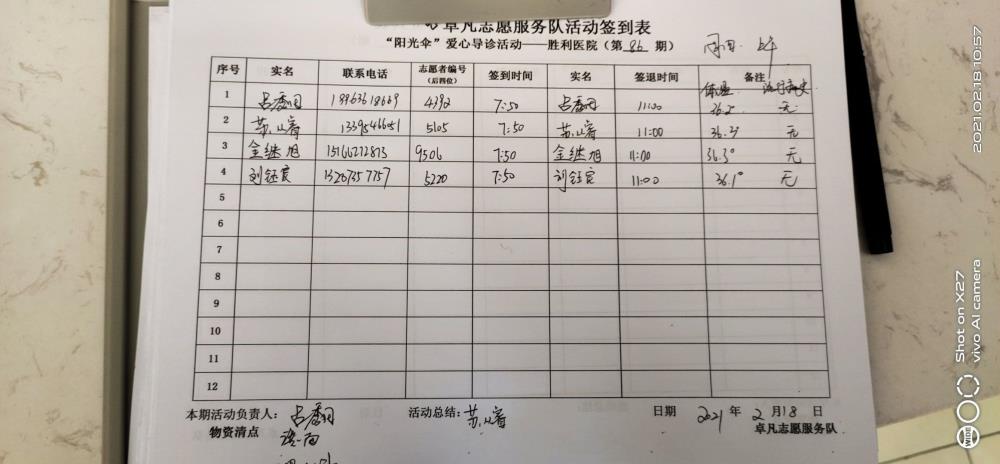 卓凡志愿服务队活动签到表
“阳光伞”爱心导诊活动——胜利医院（第 86 期）
序号 实名 联系电话 志愿者编号（后四位） 签到时间 实名 签退时间 备注
体温
1 4392 7:50 11:00 36.2° 无
2 5105 7:50 11:00 36.3° 无
3 金继旭 15166272873 9506 7:50 金继旭 11:00 36.3° 无
4 刘钰宸 5220 7:50 刘钰宸 11:00 36.1° 无
5
6
7
8
9
10
11
12
本期活动负责人： 活动总结： 日期 2021 年 2 月 18 日
物资清点 卓凡志愿服务队
2021.02.18 10:57
Shot on X27
vivo AI camera